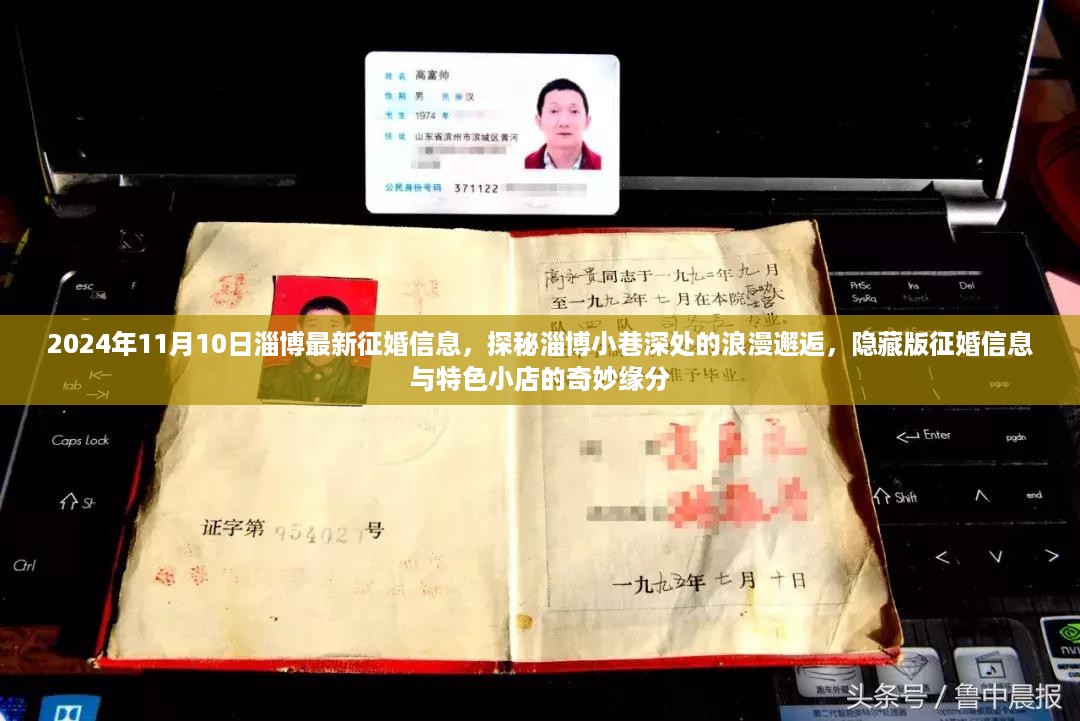 姓名 高富帅
性别 男 民族 汉
出生 1974 年
住址 山东省滨州市滨城区黄河
公民身份号码 371122
高永贵同志于一九九二年九月
至一九九五年七月在本院
2024年11月10日淄博最新征婚信息，探秘淄博小巷深处的浪漫邂逅，隐藏版征婚信息
与特色小店的奇妙缘分
准予毕业。
证字第 954027 号
一九九五年七月十日
esc
PrtSc
SysRq
Ins
Del
tab
pgup
Caps Lock
Enter
pgdn
Sh
Shift
end
Ctrl
头条号 / 鲁中晨报